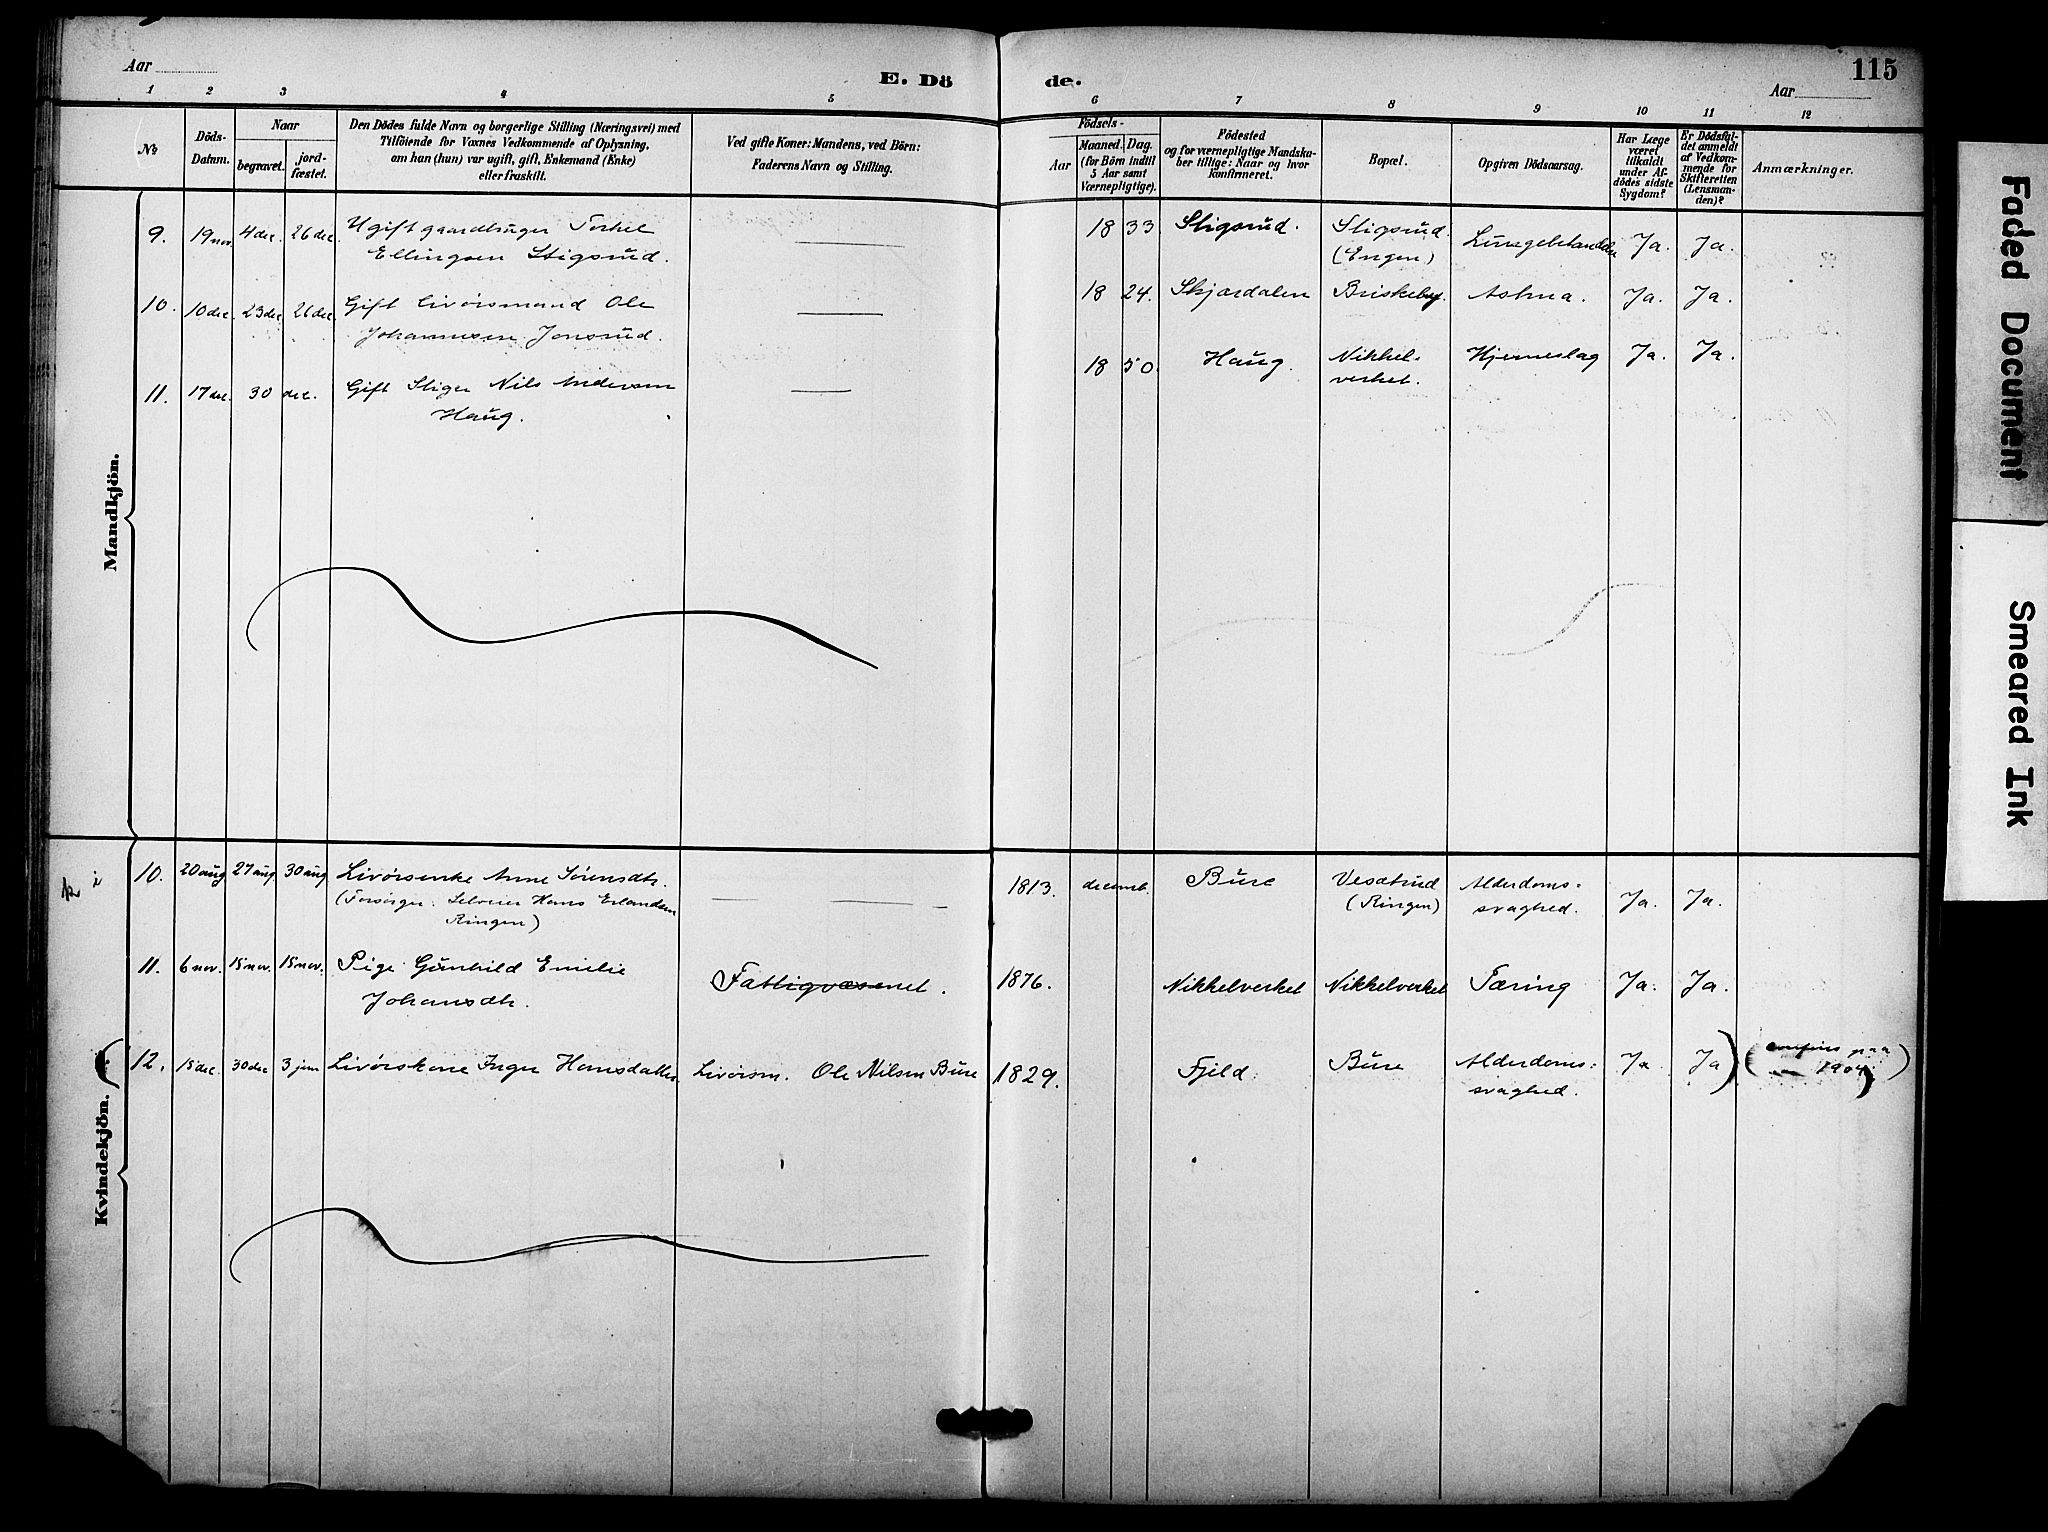 Aar
E. Dö
de.
Aar
115
1 2 3 4 5 6 7 8 9 10 11 12
№
Döds-
Datum.
Naar
begravet.
jord-
fæstet.
Den Dödes fulde Navn og borgerlige Stilling (Næringsvei) med
Tilföiende for Voxnes Vedkommende af Oplysning,
om han (hun) var ugift, gift, Enkemand (Enke)
eller fraskilt.
Ved gifte Koner: Mandens, ved Börn:
Faderens Navn og Stilling.
Födsels-
Aar
Maaned. Dag.
(for Börn indtil
5 Aar samt
Værnepligtige).
Födested
og for værnepligtige Mandska-
ber tillige: Naar og hvor
konfirmeret.
Bopæl.
Opgiven Dödsaarsag.
Har Læge
været
tilkaldt
under Af-
dödes sidste
Sygdom?
Er Dödsfal-
det anmeldt
af Vedkom-
mende for
Skifteretten
(Lensman-
den)?
Anmærkninger.
Mandkjön.
9. 19 nov. 4 dec. 26 dec. Ugift gaardbruger Torkel
Ellingsen Stigsrud.
18 33 Stigsrud. Stigsrud.
(Engen)
Ja. Ja.
10. 10 dec. 23 dec. 26 dec. Gift livörsmand Ole
Johannesen Jonsrud.
18 24. Skjærdalen Briskeby. Astma. Ja. Ja.
11. 17 dec. 30 dec. Gift Stiger Nils Andersen
Haug.
18 50. Haug. Nikkel-
verket.
Hjerneslag Ja. Ja.
Kvindekjön.
10. 20 aug 27 aug. 30 aug Livörsenke Anne Sörensdtr.
(Forsörger: Selveier Hans Erlandsen
Ringen)
1813. decemb. Bure
(Ringen)
Alderdoms-
svaghed.
Ja. Ja.
11. 6 nov. 15 nov. 15 nov. Pige Gunhild Emilie
Johansdtr.
Fattigvæsenet.
1876. Nikkelverket Nikkelverket Tæring Ja. Ja.
12. 15 dec. 30 dec 3 jan Livörskone Inger Hansdatter
Livörsm. Ole Nilsen Bure
1829. Fjeld. Bure Alderdoms-
svaghed.
Ja Ja
paa
1904)
Faded Document
Smeared Ink